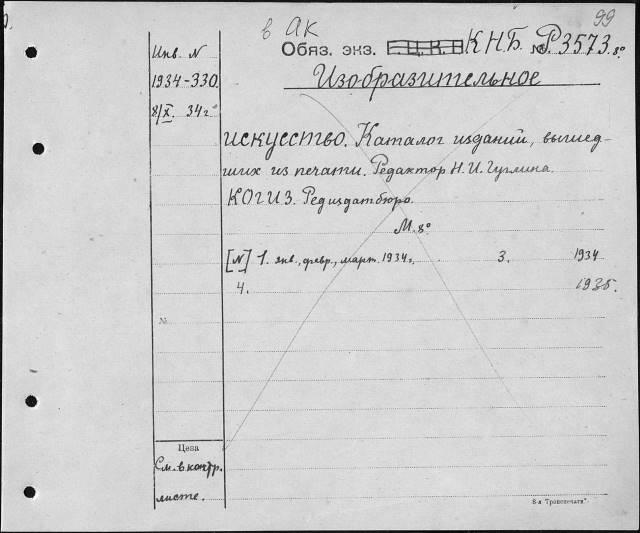 99
в АК
Обяз. экз. Г.Ц.К.П КНБ. № Р3573.8°
Инв. N
1934-330.
8/X. 34 г
Изобразительное
искусство. Каталог изданий, вышед-
ших из печати. Редактор Н.И.
КОГИЗ. Редиздатбюро.
М. 8°
[N] 1. янв., февр., март. 1934 г. 3. 1934
4. 1935.
№
Цена
См. в контр.
листе.
8-я